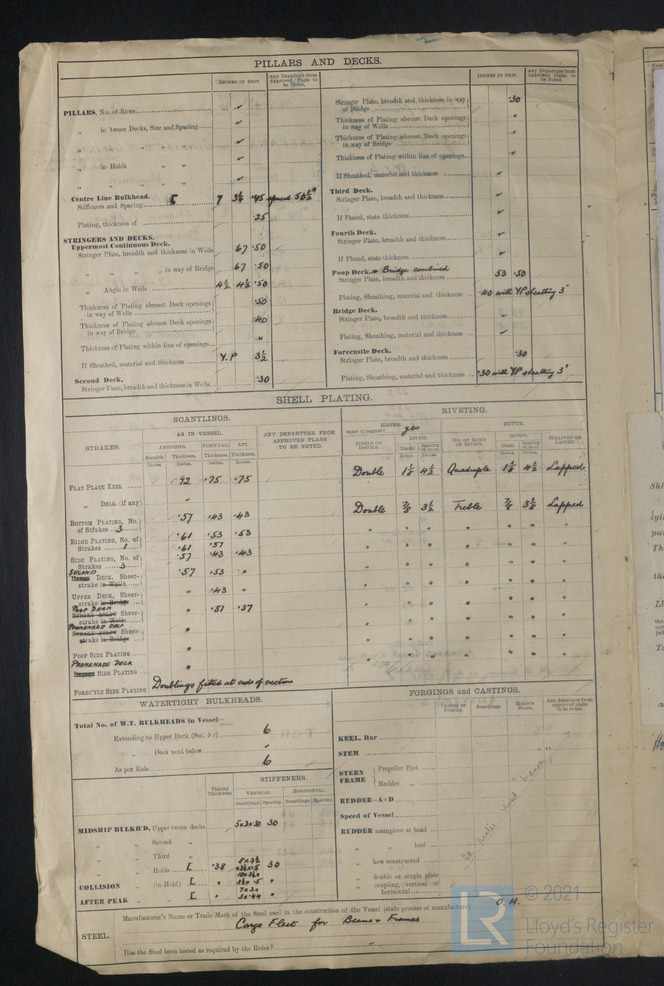 PILLARS AND DECKS.
INCHES IN SHIP.
Any Departure from Approved Plans to be Noted.
PILLARS, No. of Rows
„ in 'tween Decks, Size and Spacing
„ „ „ „
„ in Holds „
„ „ „
Centre Line Bulkhead. [
Stiffeners and Spacing 7 3½ .45 spaced 50½"
Plating, thickness of .25
STRINGERS AND DECKS.
Uppermost Continuous Deck.
Stringer Plate, breadth and thickness in Wells 67 .50
„ „ „ in way of Bridge 67 .50
„ Angle in Wells 4½ 4½ .50
Thickness of Plating abreast Deck openings in way of Wells .50
Thickness of Plating abreast Deck openings in way of Bridge .40
Thickness of Plating within line of openings "
If Sheathed, material and thickness Y.P 3½
Second Deck.
Stringer Plate, breadth and thickness in Wells .30
INCHES IN SHIP.
Any Departure from Approved Plans to be Noted.
Stringer Plate, breadth and thickness in way of Bridge .30
Thickness of Plating abreast Deck openings in way of Wells
Thickness of Plating abreast Deck openings in way of Bridge
Thickness of Plating within line of openings
If Sheathed, material and thickness
Third Deck.
Stringer Plate, breadth and thickness
If Plated, state thickness
Fourth Deck.
Stringer Plate, breadth and thickness
If Plated, state thickness
Poop Deck. & Bridge combined
Stringer Plate, breadth and thickness 53 .50
Plating, Sheathing, material and thickness .40 with YP sheathing 3"
Bridge Deck.
Stringer Plate, breadth and thickness
Plating, Sheathing, material and thickness
Forecastle Deck.
Stringer Plate, breadth and thickness .30
Plating, Sheathing, material and thickness .30 with YP sheathing 3"
SHELL PLATING.
SCANTLINGS.
RIVETING.
STRAKES.
AS IN VESSEL.
ANY DEPARTURE FROM APPROVED PLANS TO BE NOTED.
AMIDSHIPS. FORWARD. AFT.
Breadth. Thickness. Thickness. Thickness.
EDGES. yes
BUTTS.
SINGLE OR DOUBLE.
RIVETS.
NO. OF ROWS OF RIVETS.
RIVETS.
STRAPPED OR LAPPED.
FLAT PLATE KEEL .92 .75 .75 Double 1⅛ 4½ Quadruple 1⅛ 4½ Lapped
„ DBLG. (if any) "
BOTTOM PLATING, No. of Strakes 3 .57 .43 .43 Double ⅞ 3½ Treble ⅞ 3⅛ Lapped
BILGE PLATING, No. of Strakes 1 .61 .53 .53
.61 .57
SIDE PLATING, No. of Strakes 3 .57 .43 .43
SECOND DECK, Sheerstrake in Wells .57 .53 "
UPPER DECK, Sheerstrake in Bridge " .43 "
POOP DECK Sheerstrake in Wells " .51 .37
PROMENADE DECK Sheerstrake in Bridge "
POOP SIDE PLATING "
PROMENADE DECK
BRIDGE SIDE PLATING "
FORECTLE SIDE PLATING Doublings fitted at ends of erections
WATERTIGHT BULKHEADS.
Total No. of W.T. BULKHEADS in Vessel—
Extending to Upper Deck (Sec. 3 c) 6
„ Deck next below "
As per Rule 6
Plating Thickness.
STIFFENERS.
VERTICAL. HORIZONTAL.
Scantlings. Spacing. Scantlings. Spacing.
MIDSHIP BULKH'D, Upper tween decks 5x3x.30 30
„ Second „
„ Third „
„ Holds [ .38 30
COLLISION „ (in Hold) [
AFTER PEAK „ [
FORGINGS and CASTINGS.
Casting or Forging.
Scantlings.
Maker's Name.
Any departure from approved plans to be noted.
KEEL, Bar
STEM
STERN FRAME
Propeller Post
Rudder „
RUDDER—A×D
Speed of Vessel
RUDDER mainpiece at head
„ „ heel
„ how constructed
„ double or single plate
coupling, vertical or horizontal
STEEL.
Manufacturer's Name or Trade Mark of the Steel used in the construction of the Vessel (state process of manufacture) O.H.
Cargo Fleet for Beams & Frames
Has the Steel been tested as required by the Rules?
LR
© 2021
Lloyd's Register
Foundation